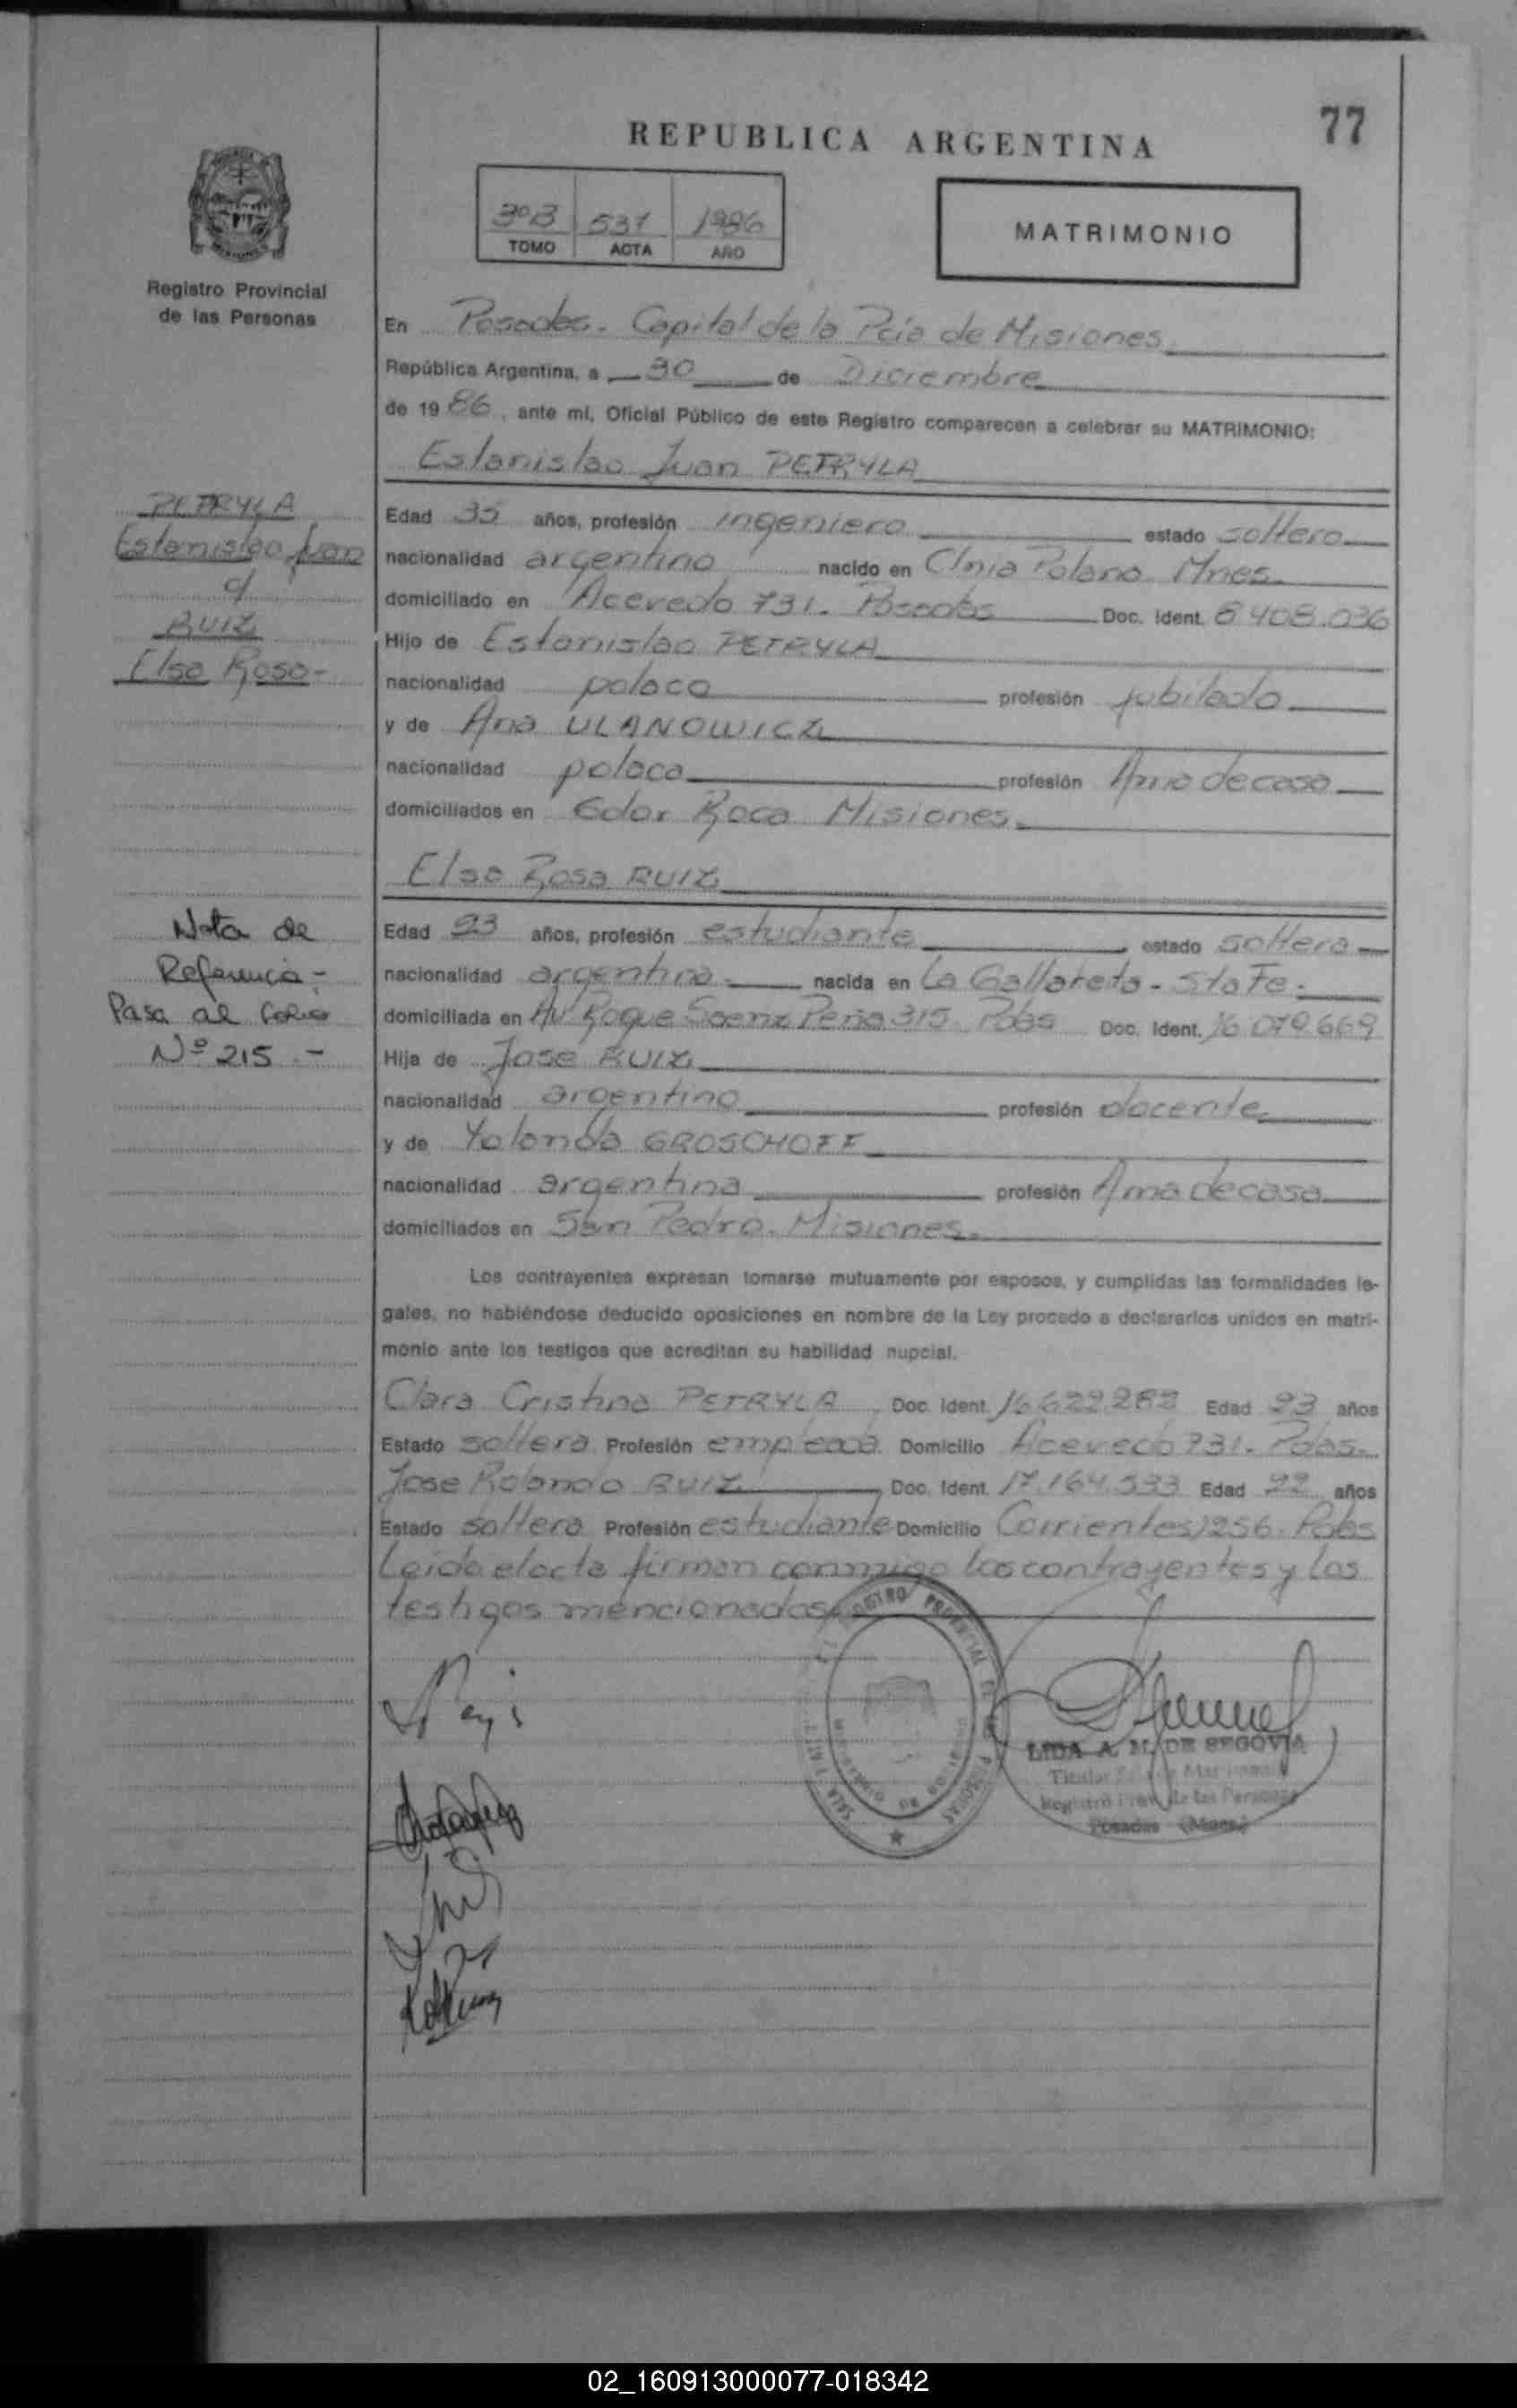 77
REPUBLICA ARGENTINA
3ºB 531 1986
TOMO ACTA AÑO
MATRIMONIO
Registro Provincial
de las Personas
En Posadas. Capital de la Pcia de Misiones
República Argentina, a 30 de Diciembre
de 19 86, ante mí, Oficial Público de este Registro comparecen a celebrar su MATRIMONIO:
Estanislao Juan PETRYLA
PETRYLA
Estanislao Juan
c/
RUIZ
Elsa Rosa-
Edad 35 años, profesión ingeniero estado soltero
nacionalidad argentino nacido en Clnia Polana Mnes.
domiciliado en Acevedo 731. Posadas Doc. Ident. 8.408.036
Hijo de Estanislao PETRYLA
nacionalidad polaco profesión jubilado
y de Ana ULANOWICZ
nacionalidad polaca profesión Ama de casa
domiciliados en Gdor Roca Misiones.
Elsa Rosa RUIZ
Nota de
Referencia-
Pasa al folio
Nº 215.-
Edad 23 años, profesión estudiante estado soltera
nacionalidad argentina nacida en La Gallareta - Sta Fe.
domiciliada en Av. Roque Saenz Peña 315. Pdas Doc. Ident. 16.079.669
Hija de Jose RUIZ
nacionalidad argentino profesión docente
y de Yolanda GROSCHOFF
nacionalidad argentina profesión Ama de casa
domiciliados en San Pedro. Misiones.
Los contrayentes expresan tomarse mutuamente por esposos, y cumplidas las formalidades le-
gales, no habiéndose deducido oposiciones en nombre de la Ley procedo a declararlos unidos en matri-
monio ante los testigos que acreditan su habilidad nupcial.
Clara Cristina PETRYLA, Doc. Ident. 16.622.282 Edad 23 años
Estado soltera Profesión empleada Domicilio Acevedo 731. Pdas.
Jose Rolando RUIZ, Doc. Ident. 17.164.533 Edad 22 años
Estado soltero Profesión estudiante Domicilio Corrientes 1256. Pdas
Leida el acta firman conmigo los contrayentes y los
testigos mencionados
REGISTRO PROVINCIAL DE LAS PERSONAS
LIDA A. M. DE SEGOVIA
Titular
Registro Prov. de las Personas
Posadas (Mnes.)
02_160913000077-018342